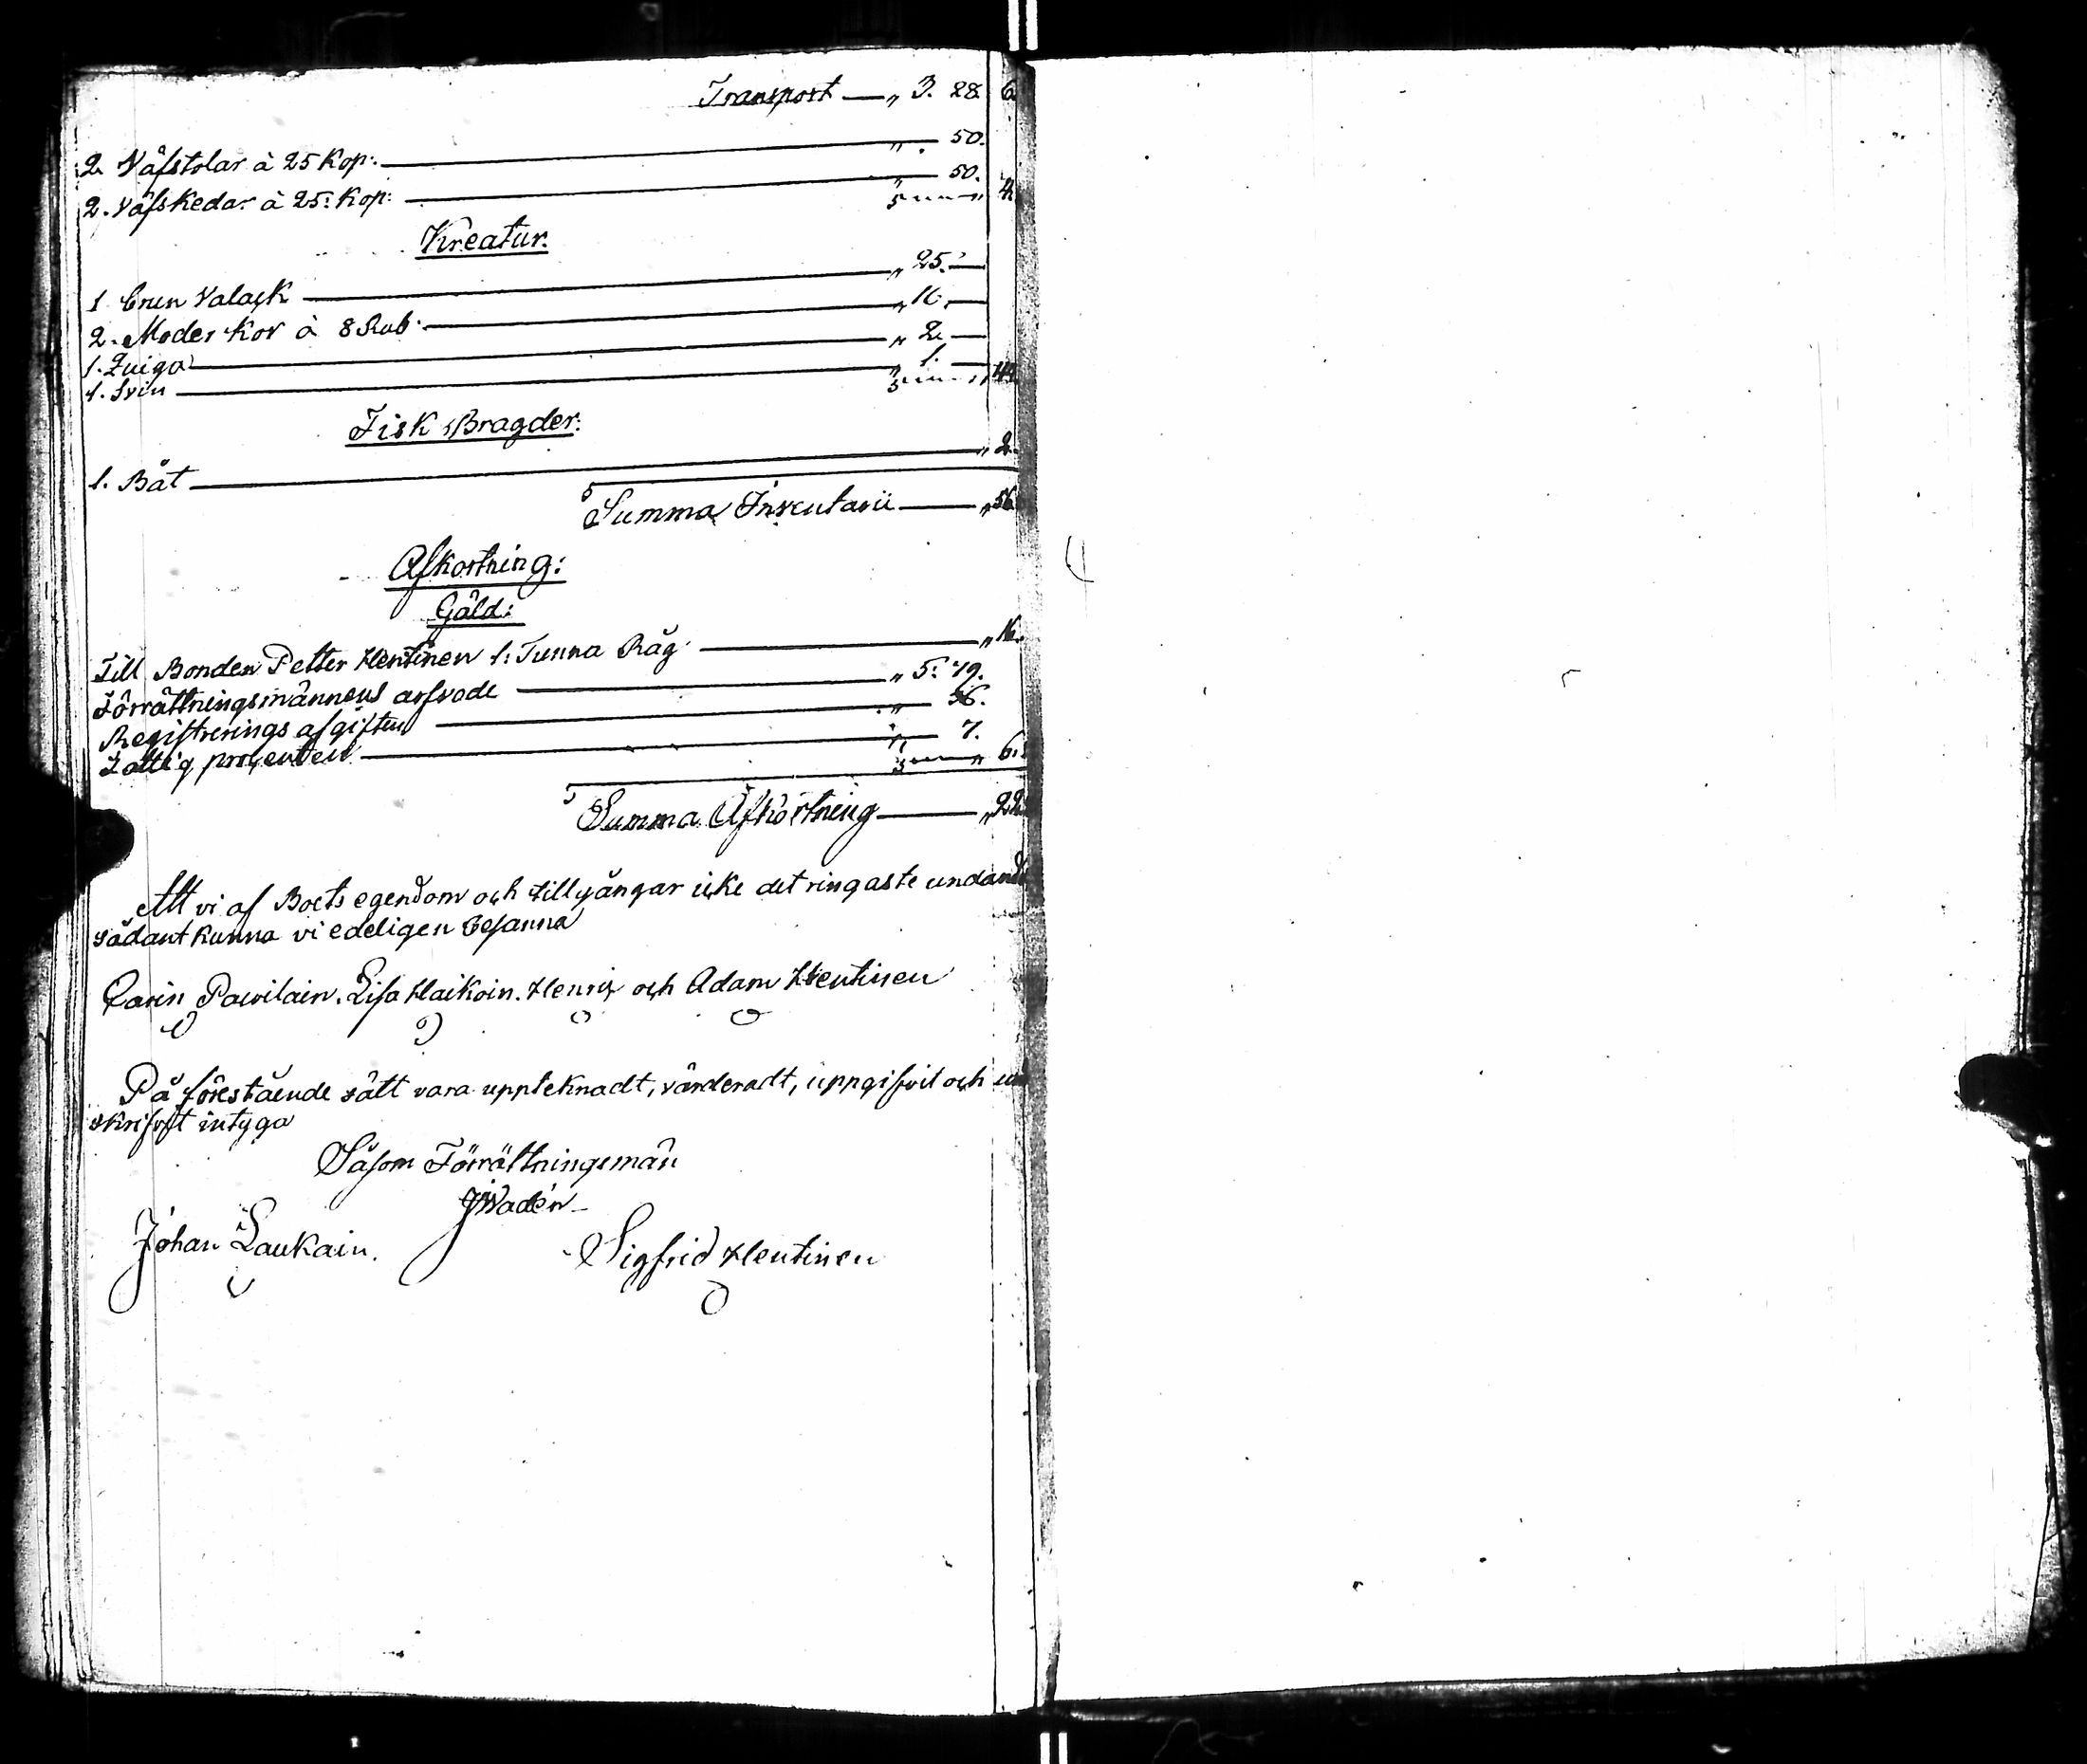 Transport — „ 3. 28. 6
2. Väfstolar à 25 Kop: — „ . 50.
2. Väfskedar à 25: Kop: — „ 50. „ 4.
Kreatur.
1 brun Valack — „ 25. —
2. Moder Kor à 8 Rub. — „ 16. —
1. Quiga — „ 2. —
1. Svin — „ 1. — „ 44.
Fisk Bragder:
1. Båt — „ 2.
Summa Inventarii — „ 56
Afkortning:
Gäld:
Till Bonden Petter Hentinen 1: Tunna Råg — „ 16.
Förrättningsmännens arfvode — „ 5: 79.
Registrerings afgiften — „ 36.
Fattig procenten — „ 7. „ 6.
Summa Afkortning — „ 22
Att vi af Boets egendom och tillgångar icke det ringaste undand
sådant kunna vi edeligen besanna
Carin Pawilain. Lisa Haikoin. Henric och Adam Hentinen
På förestående sätt vara uppteknadt, värderadt, uppgifvit och un
skrifvit intyga
Såsom Förrättningsmän
JWadén
Johan Laukain. Sigfrid Hentinen